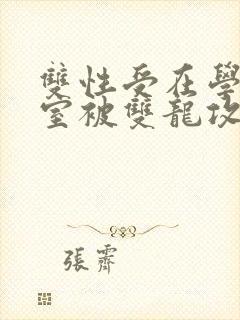 雙性受在學
室被雙龍攻
張霽